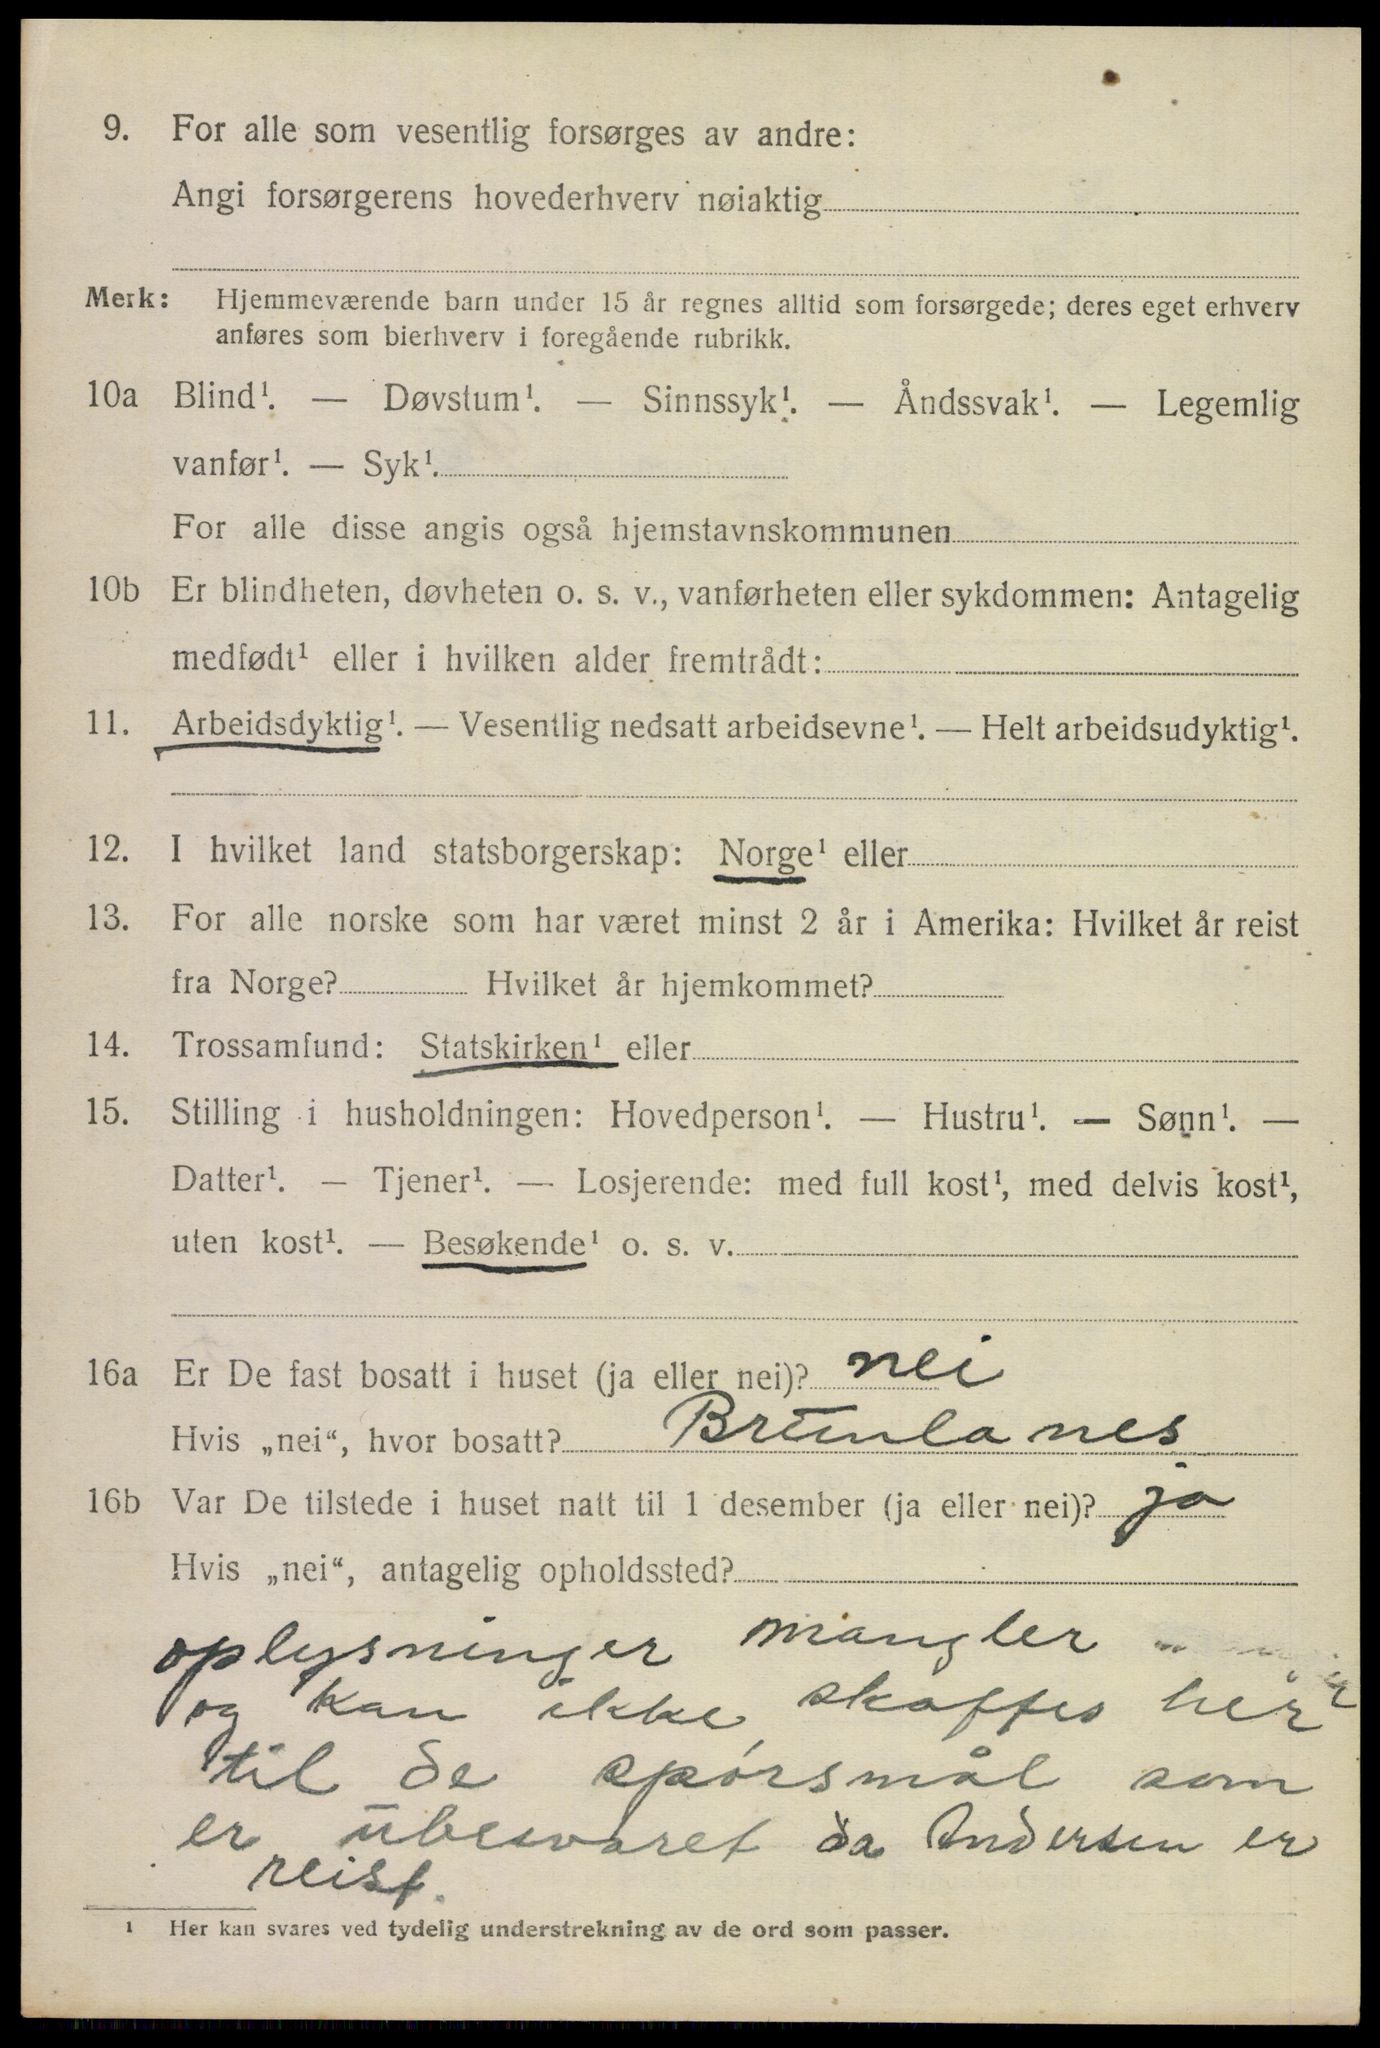 9. For alle som vesentlig forsørges av andre:
Angi forsørgerens hovederhverv nøiaktig
Merk: Hjemmeværende barn under 15 år regnes alltid som forsørgede; deres eget erhverv
anføres som bierhverv i foregående rubrikk.
10a Blind¹. — Døvstum¹. — Sinnssyk¹. — Åndssvak¹. — Legemlig
vanfør¹. — Syk¹.
For alle disse angis også hjemstavnskommunen
10b Er blindheten, døvheten o. s. v., vanførheten eller sykdommen: Antagelig
medfødt¹ eller i hvilken alder fremtrådt:
11. Arbeidsdyktig¹. — Vesentlig nedsatt arbeidsevne¹. — Helt arbeidsudyktig¹.
12. I hvilket land statsborgerskap: Norge¹ eller
13. For alle norske som har været minst 2 år i Amerika: Hvilket år reist
fra Norge? Hvilket år hjemkommet?
14. Trossamfund: Statskirken¹ eller
15. Stilling i husholdningen: Hovedperson¹. — Hustru¹. — Sønn¹. —
Datter¹. — Tjener¹. — Losjerende: med full kost¹, med delvis kost¹,
uten kost¹. — Besøkende¹ o. s. v.
16a Er De fast bosatt i huset (ja eller nei)? nei
Hvis „nei“, hvor bosatt? Brunlanes
16b Var De tilstede i huset natt til 1 desember (ja eller nei)? ja
Hvis „nei“, antagelig opholdssted?
oplysninger mangler
og kan ikke skaffes her
til de spørsmål som
er ubesvaret da Andersen er
reist.
¹ Her kan svares ved tydelig understrekning av de ord som passer.